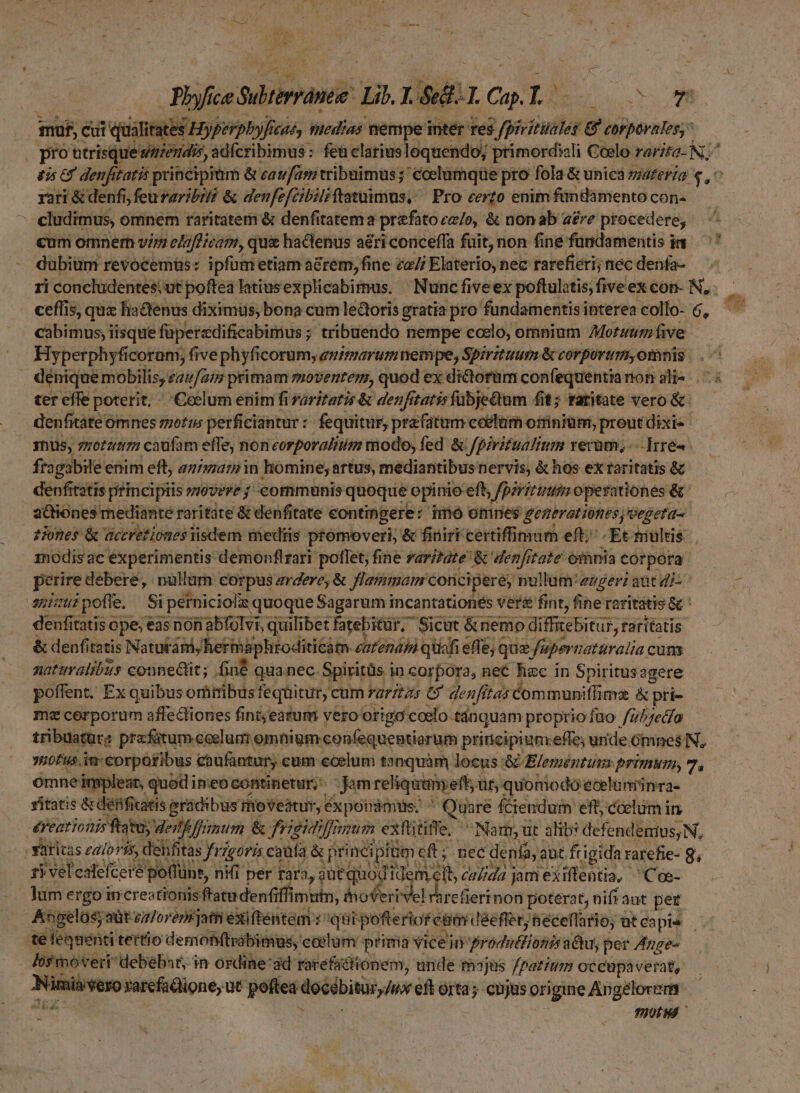 Phyſicæ Subterraneæ Lib. I. Sect. I. Cap. I. 7
mur, cui qualitates Hyperphyſicas, medias nempe inter res ſpirituales & corporales,
pro utrisque uniendis, adſcribimus: ſeu clarius loquendo, primordiali Cœlo rarita- N.
tis & denſitatis principium & cauſam tribuimus; cœlumque pro ſola & unica materia 5,
rari & denſi, ſeu raribili & denſeſcibili ſtatuimus. Pro certo enim fundamento con-
cludimus, omnem raritatem & denſitatem a præfato cœlo, & non ab aëre procedere,
cum omnem vim elaſticam, quæ hactenus aëri conceſſa fuit, non ſine fundamentis in
dubium revocemus: ipſum etiam aërem, ſine cœli Elaterio, nec rarefieri, nec denſa-
ri concludentes, ut poſtea latius explicabimus. Nunc ſive ex poſtulatis, ſive ex con- N.
ceſſis, quæ hactenus diximus, bona cum lectoris gratia pro fundamentis interea collo- 6,
cabimus, iisque ſuperædificabimus; tribuendo nempe cœlo, omnium Motuum ſive
Hyperphyſicorum, ſive phyſicorum, animarum nempe, Spirituum & corporum, omnis
denique mobilis, cauſam primam moventem, quod ex dictorum conſequentia non ali-
ter eſſe poterit. Cœlum enim ſi raritatis & denſitatis ſubjectum ſit; raritate vero &
denſitate omnes motus perficiantur: ſequitur, præfatum cœlum omnium, prout dixi-
mus, motuum cauſam eſſe, non corporalium modo, ſed & ſpiritualium rerum. Irre-
fragabile enim eſt, animam in homine, artus, mediantibus nervis, & hos ex raritatis &
denſitatis principiis movere; communis quoque opinio eſt, ſpirituum operationes &
actiones mediante raritate & denſitate contingere: imo omnes generationes, vegeta-
tiones & accretiones iisdem mediis promoveri, & finiri certiſſimum eſt. Et multis
modis ac experimentis demonſtrari poſſet, ſine raritate & denſitate omnia corpora
perire debere, nullum corpus ardere, & flammam concipere, nullum augeri aut di-
minui poſſe. Si pernicioſæ quoque Sagarum incantationes veræ ſint, ſine raritatis &
denſitatis ope, eas non abſolvi, quilibet fatebitur. Sicut & nemo diffitebitur, raritatis
& denſitatis Naturam, hermaphroditicam catenam quaſi eſſe, quæ ſupernaturalia cum
naturalibus connectit; ſine qua nec Spiritûs in corpora, nec hæc in Spiritus agere
poſſent. Ex quibus omnibus ſequitur, cum raritas & denſitas communiſſimæ & pri-
mæ corporum affectiones ſint, earum vero origo cœlo tanquam proprio ſuo ſubjecto
tribuatur: præfatum cœlum omnium conſequentiarum principium eſſe, unde omnes N.
motus in corporibus cauſantur, cum cœlum tanquàm locus & Elementum primum, 7,
omne impleat, quod in eo continetur. Jam reliquum eſt, ut, quomodo cœlum in ra-
ritatis & denſitatis gradibus moveatur, exponamus. Quare ſciendum eſt, cœlum in
creationis ſtatu, denſiſſimum & frigidiſſimum exſtitiſſe. Nam, ut alibi defendemus, N.
raritas caloris, denſitas frigoris cauſa & principium eſt; nec denſa, aut frigida rarefie- 8,
ri vel caleſcere poſſunt, niſi per rara, aut quod idem eſt, calida jam exiſtentia. Cœ-
lum ergo in creationis ſtatu denſiſſimum, moveri vel rarefieri non poterat, niſi aut per
Angelos, aut calorem jam exiſtentem: qui poſterior cum deeſſet, neceſſario, ut capi-
te ſequenti tertio demonſtrabimus, cœlum prima vice in productionis actu, per Ange-
los moveri debebat, in ordine ad rarefactionem, unde majus ſpatium occupaverat.
Nimia vero rarefactione, ut poſtea docebitur, lux eſt orta; cujus origine Angelorum
motus